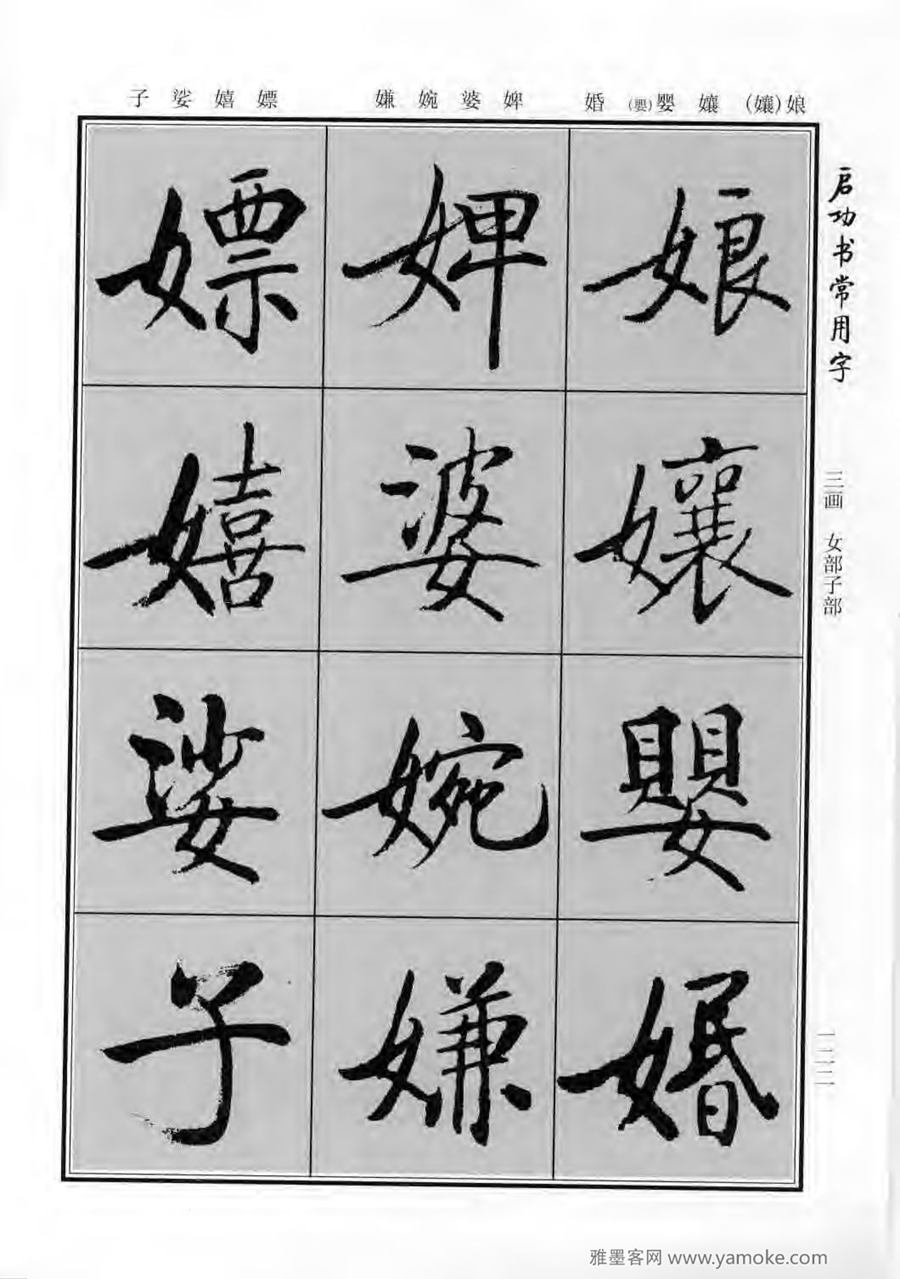 子 娑 嬉 嫖 嫌 婉 婆 婢 婚 (嬰)婴 孃 (孃)娘
启功书常用字
三画 女部子部
一二二
娘
孃
嬰
婚
婢
婆
婉
嫌
嫖
嬉
娑
子
雅墨客网 www.yamoke.com